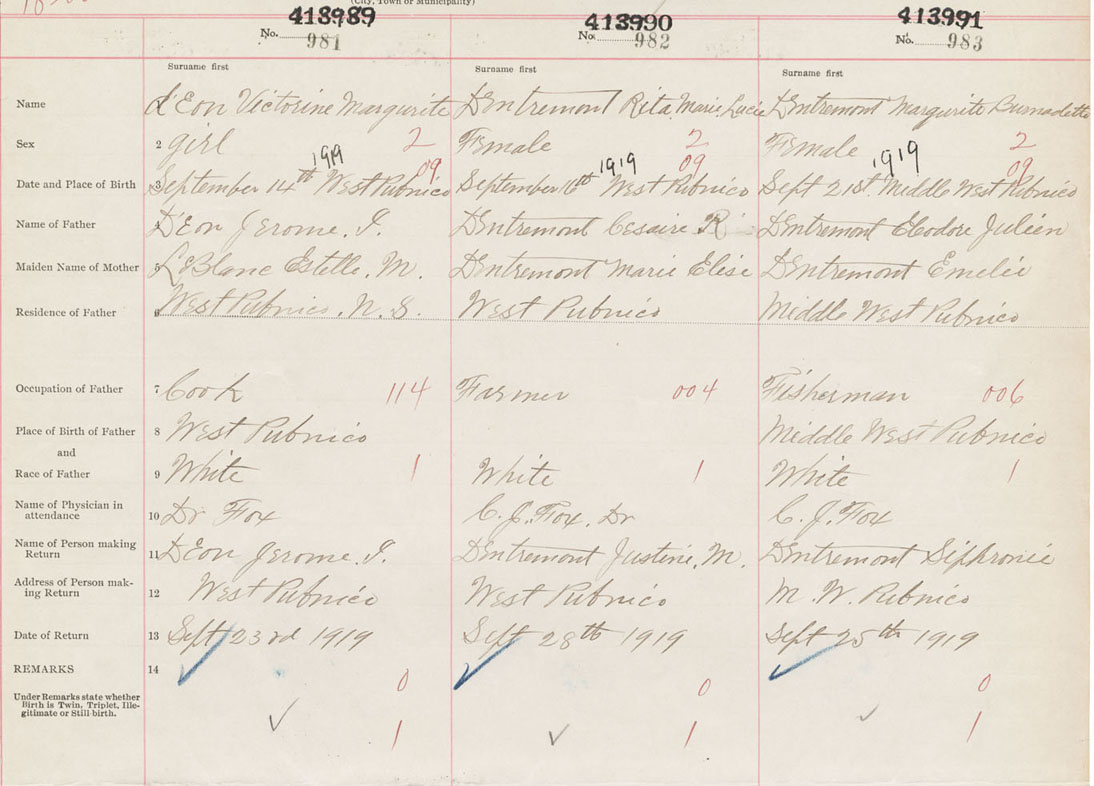 (City, Town or Municipality)
413989 413990 413991
No. 981 No. 982 No. 983
Surname first Surname first Surname first
Name d'Eon Victorine Margurite D'Entremont Rita Marie Lucie D'Entremont Margurite Burnadette
Sex 2 girl 2 Female 2 Female 2
1919 09 1919 09 1919 09
Date and Place of Birth 3 September 14th West Pubnico September 16th West Pubnico Sept 21st. Middle West Pubnico
Name of Father D'Eon Jerome. I. D'Entremont Cesaire R D'Entremont Elodore Julien
Maiden Name of Mother LeBlanc Estelle. M. D'Entremont Marie Elise D'Entremont Emelie
Residence of Father 6 West Pubnico. N. S. West Pubnico Middle West Pubnico
Occupation of Father 7 Cook 114 Farmer 004 Fisherman 006
Place of Birth of Father 8 West Pubnico Middle West Pubnico
and
Race of Father 9 White 1 White 1 White 1
Name of Physician in
attendance 10 Dr Fox C. J. Fox, Dr C. J. Fox
Name of Person making
Return 11 D'Eon Jerome. I. D'Entremont Justine, M. D'Entremont Sifhronie
Address of Person mak-
ing Return 12 West Pubnico West Pubnico M. W. Pubnico
Date of Return 13 Sept 23rd 1919 Sept 28th 1919 Sept 25th 1919
REMARKS 14
0 0 0
Under Remarks state whether
Birth is Twin, Triplet, Ille-
gitimate or Still-birth.
1 1 1